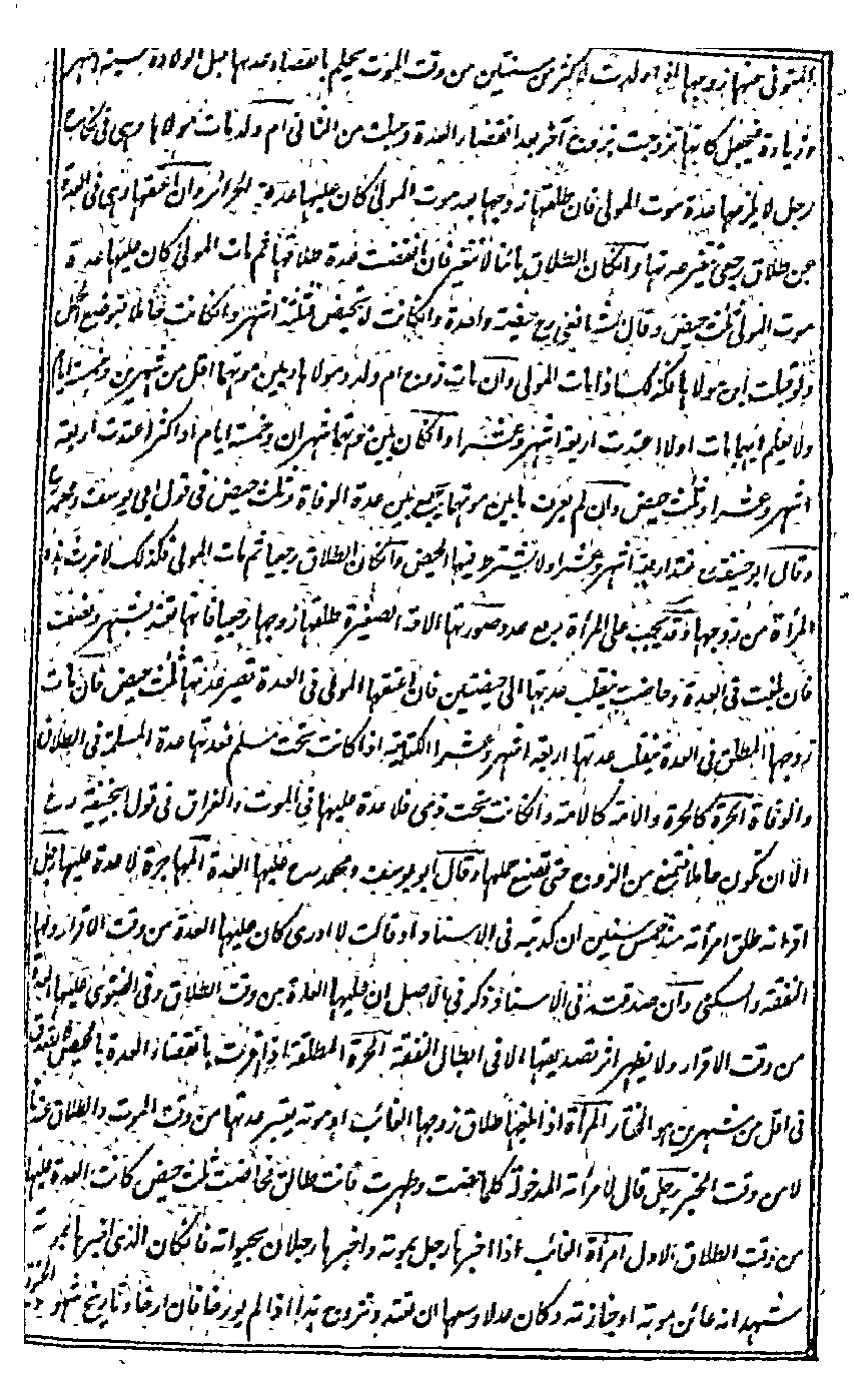 المتوفى عنها زوجها اذا ولدت لاكثر من سنتين من وقت الموت يحكم بانقضاء عدتها قبل الولادة بستة اشهر
وزيادة فيجعل كانها تزوجت بزوج آخر بعد انقضاء العدة وحبلت من الثانى ام ولد مات مولاها وهى فى نكاح
رجل لا يلزمها عدة موت المولى فان طلقها زوجها بعد موت المولى كان عليها عدة الحرائر وان اعتقها وهى فى العدة
عن طلاق رجعى تتغير عدتها وانكان الطلاق بائنا لا تتغير فان انقضت عدة طلاقها ثم مات المولى كان عليها عدة
موت المولى ثلث حيض وقال الشافعى رح حيضة واحدة وانكانت لا تحيض فثلثة اشهر وانكانت حاملا فبوضع الحمل
ولو قبلت ابن مولاها فكذلك اذا مات المولى وان مات زوج ام ولد ومولاها وبين موتهما اقل من شهرين وخمسة ايام
ولا يعلم ايهما مات اولا اعتدت اربعة اشهر وعشرا وانكان بين موتهما شهران وخمسة ايام او اكثر اعتدت اربعة
اشهر وعشرا وثلث حيض وان لم يعرف ما بين موتهما يجمع بين عدة الوفاة وثلث حيض فى قول ابى يوسف ومحمد رح
وقال ابو حنيفة رح تعتد اربعة اشهر وعشرا ولا يشترط فيها الحيض وانكان الطلاق رجعيا ثم مات المولى فكذلك لا ترث هذه
المرأة من زوجها وقد يجب على المرأة اربع عدد صورتها الامة الصغيرة طلقها زوجها رجعيا فانها تعتد بشهر ونصف
فان بلغت فى العدة وحاضت ينقلب عدتها الى حيضتين فان اعتقها المولى فى العدة تصير عدتها ثلث حيض فان مات
زوجها المطلق فى العدة ينقلب عدتها اربعة اشهر وعشرا الكتابية اذا كانت تحت مسلم فعدتها عدة المسلمة فى الطلاق
والوفاة الحرة كالحرة والامة كالامة وانكانت تحت ذمى فلا عدة عليها فى الموت والفراق فى قول ابيحنيفة رح
الا ان تكون حاملا فتمنع من الزوج حتى تضع حملها وقال ابو يوسف ومحمد رح عليها العدة المهاجرة لا عدة عليها رجل
اقر انه طلق امرأته منذ خمس سنين ان كذبته فى الاسناد او قالت لا ادرى كان عليها العدة من وقت الاقرار ولها
النفقة والسكنى وان صدقته فى الاسناد ذكر فى الاصل ان عليها العدة من وقت الطلاق وفى الفتوى عليها العدة
من وقت الاقرار ولا يظهر اثر تصديقها الا فى ابطال النفقة الحرة المطلقة اذا اقرت بانقضاء العدة بالحيض لا تصدق
فى اقل من شهرين هو المختار المرأة اذا بلغها طلاق زوجها الغائب او موته يعتبر عدتها من وقت الموت والطلاق عندنا
لا من وقت الخبر رجل قال لامرأته المدخولة كلما حضت وطهرت فانت طالق فحاضت ثلث حيض كانت العدة عليها
من وقت الطلاق الاول امرأة الغائب اذا اخبرها رجل بموته واخبرها رجلان بحيوته فانكان الذى اخبرها بموته
شهد انه عاين موته او جنازته وكان عدلا وسعها ان تعتد وتتزوج هذا اذا لم يورخا فان ارخا وتاريخ شهود